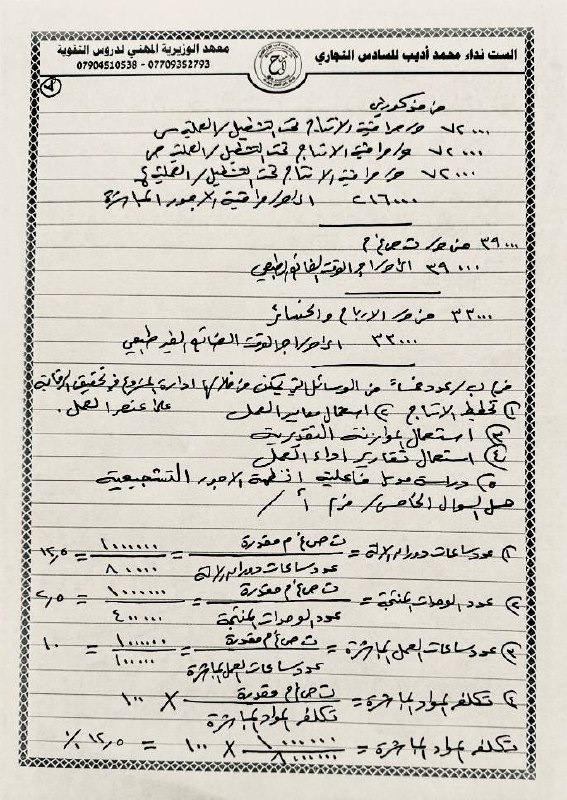 الست نداء محمد أديب للسادس التجاري
معهد الوزيرية المهني لدروس التقوية
07904510538 - 07709352793
من مذكورين
٧٢٠٠٠ ح/ مراقبة الانتاج تحت التشغيل / العملية س
٧٢٠٠٠ ح/ مراقبة الانتاج تحت التشغيل / العملية ص
٧٢٠٠٠ ح/ مراقبة الانتاج تحت التشغيل / العملية ع
٢١٦٠٠٠ الى ح/ مراقبة الاجور المباشرة
٣٩٠٠٠ من ح/ ت ص غ م
٣٩٠٠٠ الى ح/ اجر الوقت الضائع الطبيعي
٣٣٠٠٠ من ح/ الارباح والخسائر
٣٣٠٠٠ الى ح/ اجر الوقت الضائع الغير طبيعي
ب / عدد خمساً من الوسائل التي يمكن من خلالها ادارة المشروع في تحقيق الرقابة
على عنصر العمل .
١) تخطيط الانتاج ٢) استعمال معايير العمل
٣) استعمال الموازنة التقديرية
٤) استعمال تقارير اداء العمل
٥) دراسة مدى فاعلية انظمة الاجور التشجيعية
حل السؤال الخامس / فرع أ /
١) عدد ساعات دوران الالة = ت ص غ م مقدرة / عدد ساعات دوران الالة = ١٠٠٠٠٠٠ / ٨٠٠٠٠ = ١٢,٥
٢) عدد الوحدات المنتجة = ت ص غ م مقدرة / عدد الوحدات المنتجة = ١٠٠٠٠٠٠ / ٤٠٠٠٠٠ = ٢,٥
٣) عدد ساعات العمل المباشرة = ت ص غ م مقدرة / عدد ساعات العمل المباشرة = ١٠٠٠٠٠٠ / ١٠٠٠٠٠ = ١٠
٤) تكلفة المواد المباشرة = ت ص غ م مقدرة / تكلفة المواد المباشرة × ١٠٠
تكلفة المواد المباشرة = ١٠٠٠٠٠٠ / ٨٠٠٠٠٠٠ × ١٠٠ = ١٢,٥ %